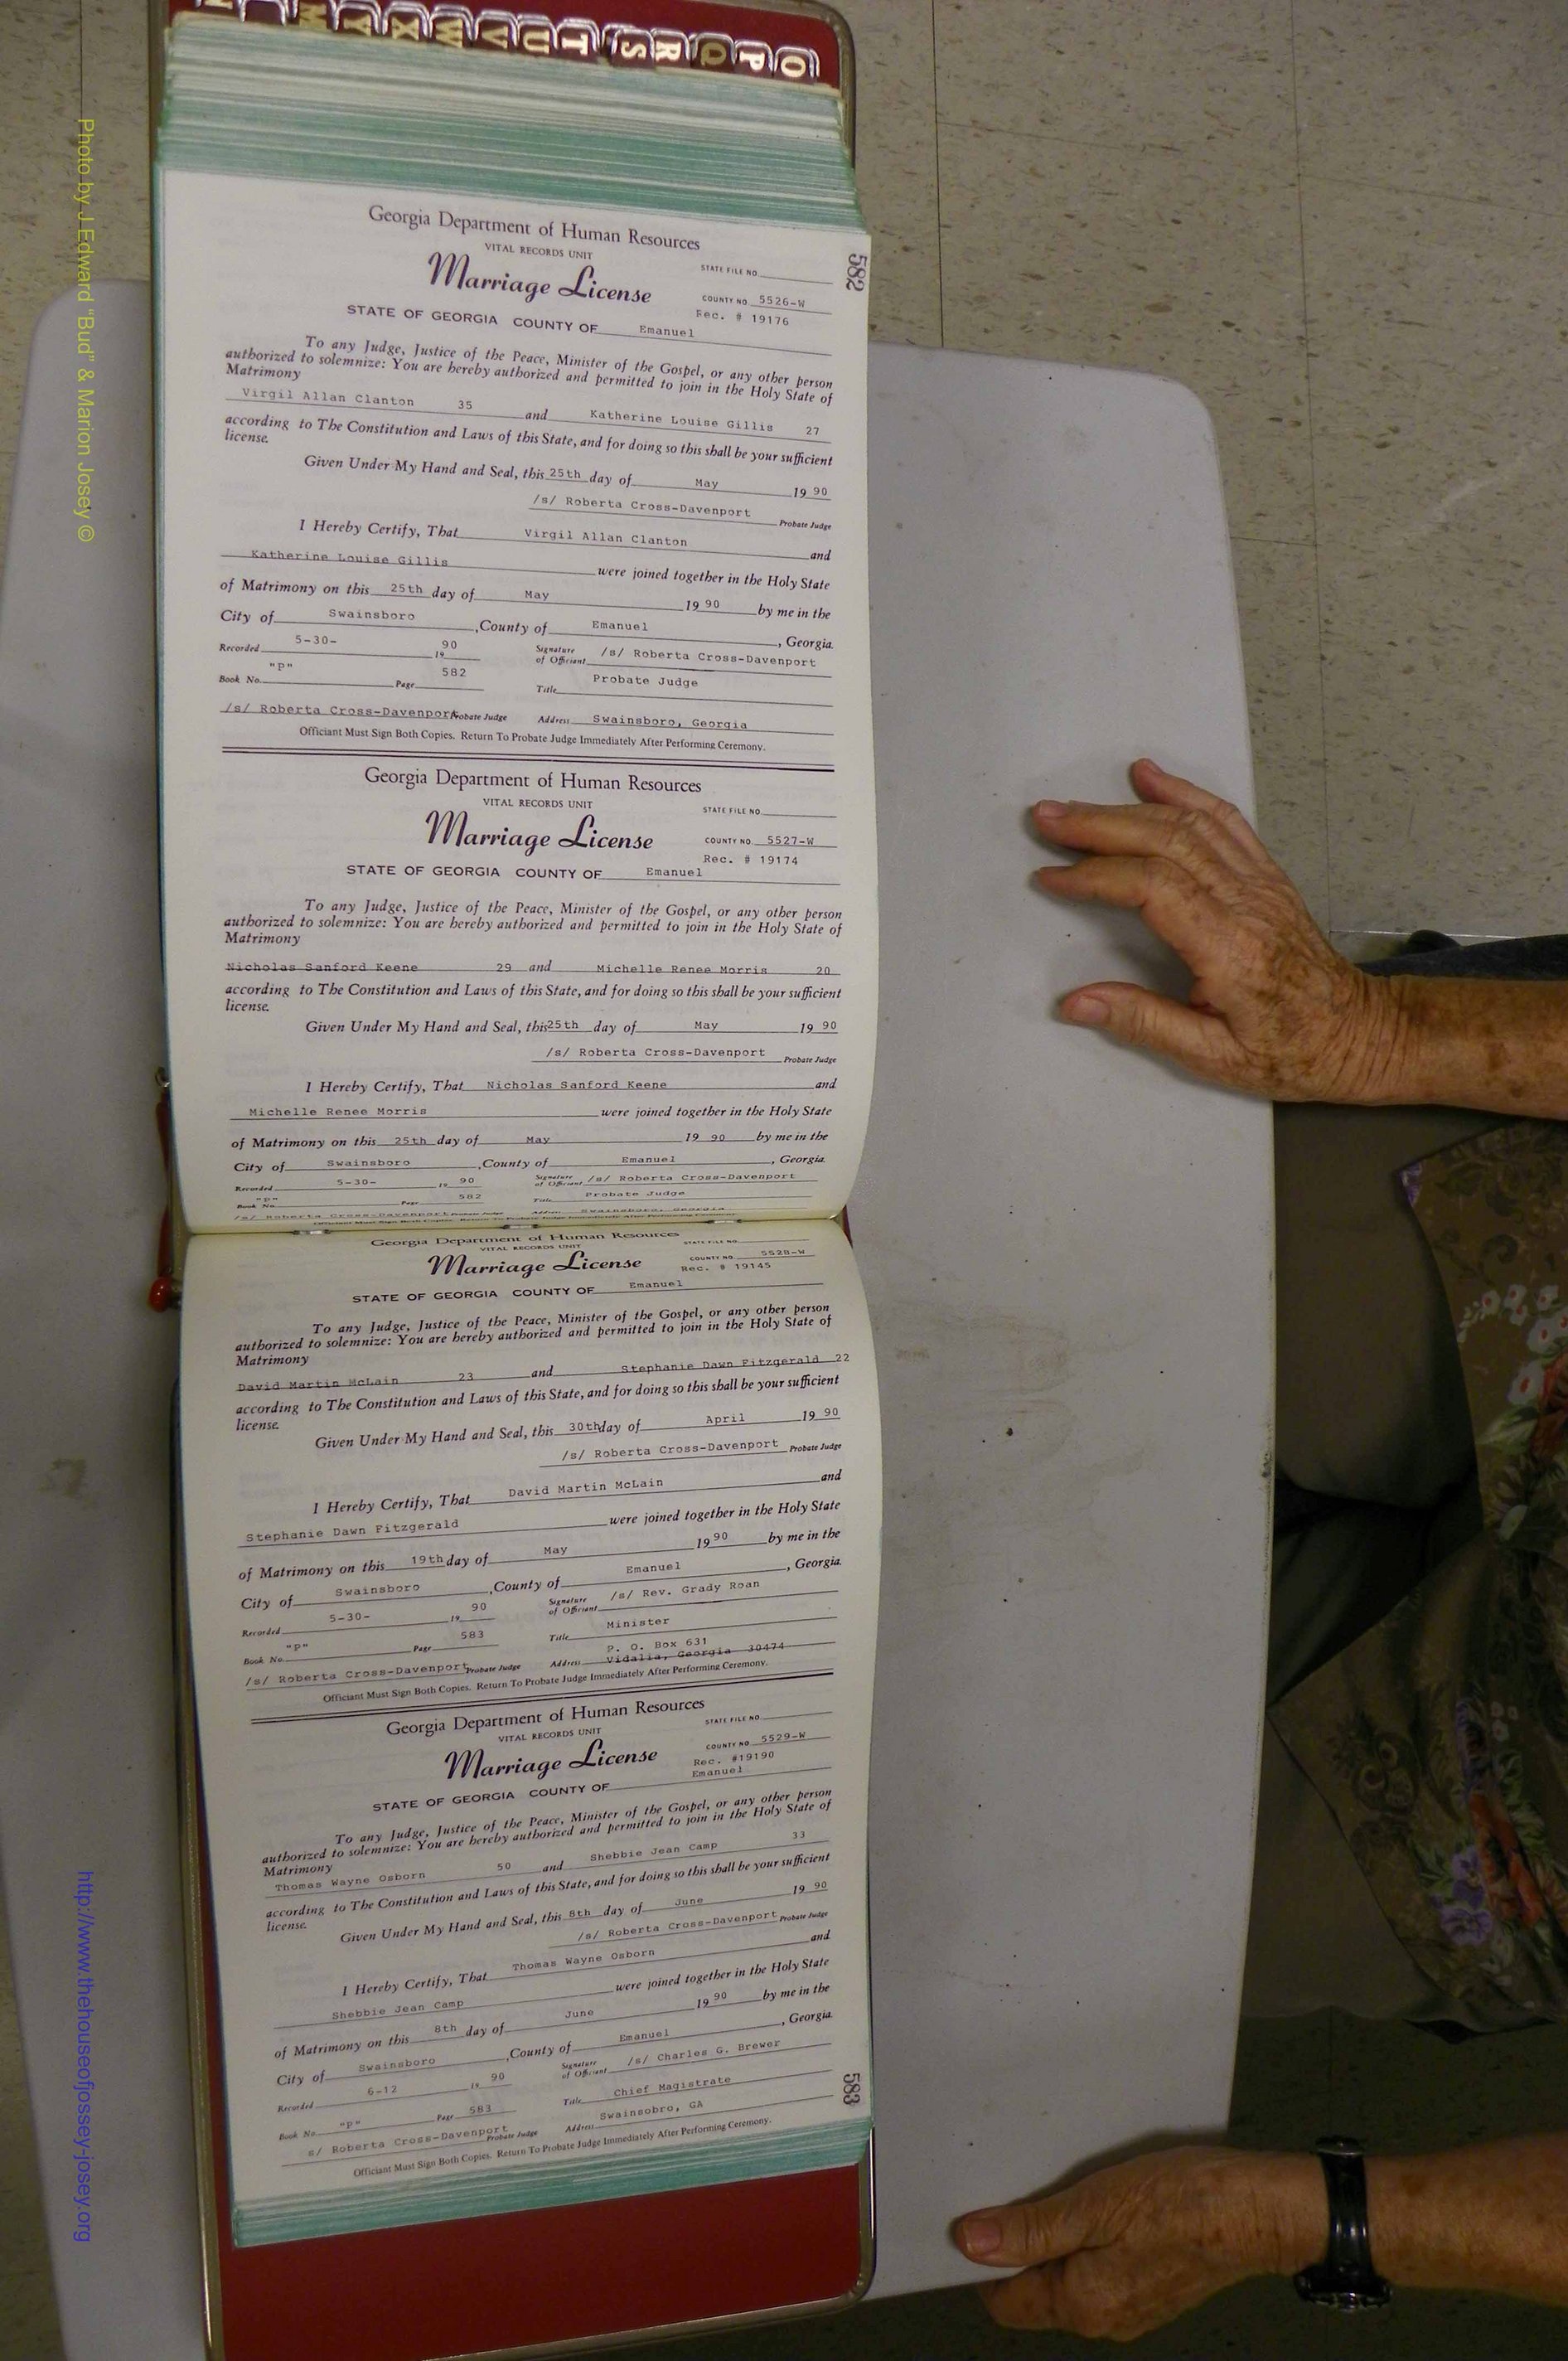 O P Q R S T U V W X Y M N
Georgia Department of Human Resources
VITAL RECORDS UNIT
Marriage License
STATE FILE NO.
582
COUNTY NO. 5526-W
Rec. # 19176
STATE OF GEORGIA COUNTY OF Emanuel
To any Judge, Justice of the Peace, Minister of the Gospel, or any other person
authorized to solemnize: You are hereby authorized and permitted to join in the Holy State of
Matrimony
Virgil Allan Clanton 35 and Katherine Louise Gillis 27
according to The Constitution and Laws of this State, and for doing so this shall be your sufficient
license.
Given Under My Hand and Seal, this 25th day of May 19 90
/s/ Roberta Cross-Davenport Probate Judge
I Hereby Certify, That Virgil Allan Clanton and
Katherine Louise Gillis were joined together in the Holy State
of Matrimony on this 25th day of May 19 90 by me in the
City of Swainsboro ,County of Emanuel , Georgia.
Recorded 5-30- 19 90 Signature of Officiant /s/ Roberta Cross-Davenport
Book No. "P" Page 582 Title Probate Judge
/s/ Roberta Cross-Davenport Probate Judge Address Swainsboro, Georgia
Officiant Must Sign Both Copies. Return To Probate Judge Immediately After Performing Ceremony.
Georgia Department of Human Resources
VITAL RECORDS UNIT
Marriage License
STATE FILE NO.
COUNTY NO. 5527-W
Rec. # 19174
STATE OF GEORGIA COUNTY OF Emanuel
To any Judge, Justice of the Peace, Minister of the Gospel, or any other person
authorized to solemnize: You are hereby authorized and permitted to join in the Holy State of
Matrimony
Nicholas Sanford Keene 29 and Michelle Renee Morris 20
according to The Constitution and Laws of this State, and for doing so this shall be your sufficient
license.
Given Under My Hand and Seal, this 25th day of May 19 90
/s/ Roberta Cross-Davenport Probate Judge
I Hereby Certify, That Nicholas Sanford Keene and
Michelle Renee Morris were joined together in the Holy State
of Matrimony on this 25th day of May 19 90 by me in the
City of Swainsboro ,County of Emanuel , Georgia.
Recorded 5-30- 19 90 Signature of Officiant /s/ Roberta Cross-Davenport
Book No. "P" Page 582 Title Probate Judge
/s/ Roberta Cross-Davenport Probate Judge Address Swainsboro, Georgia
Officiant Must Sign Both Copies. Return To Probate Judge Immediately After Performing Ceremony.
Georgia Department of Human Resources
VITAL RECORDS UNIT
Marriage License
STATE FILE NO.
COUNTY NO. 5528-W
Rec. # 19145
STATE OF GEORGIA COUNTY OF Emanuel
To any Judge, Justice of the Peace, Minister of the Gospel, or any other person
authorized to solemnize: You are hereby authorized and permitted to join in the Holy State of
Matrimony
David Martin McLain 23 and Stephanie Dawn Fitzgerald 22
according to The Constitution and Laws of this State, and for doing so this shall be your sufficient
license.
Given Under My Hand and Seal, this 30th day of April 19 90
/s/ Roberta Cross-Davenport Probate Judge
I Hereby Certify, That David Martin McLain and
Stephanie Dawn Fitzgerald were joined together in the Holy State
of Matrimony on this 19th day of May 19 90 by me in the
City of Swainsboro ,County of Emanuel , Georgia.
Recorded 5-30- 19 90 Signature of Officiant /s/ Rev. Grady Roan
Book No. "P" Page 583 Title Minister
P. O. Box 631
/s/ Roberta Cross-Davenport Probate Judge Address Vidalia, Georgia 30474
Officiant Must Sign Both Copies. Return To Probate Judge Immediately After Performing Ceremony.
Georgia Department of Human Resources
VITAL RECORDS UNIT
Marriage License
STATE FILE NO.
COUNTY NO. 5529-W
Rec. #19190
STATE OF GEORGIA COUNTY OF Emanuel
To any Judge, Justice of the Peace, Minister of the Gospel, or any other person
authorized to solemnize: You are hereby authorized and permitted to join in the Holy State of
Matrimony
Thomas Wayne Osborn 50 and Shebbie Jean Camp 33
according to The Constitution and Laws of this State, and for doing so this shall be your sufficient
license.
Given Under My Hand and Seal, this 8th day of June 19 90
/s/ Roberta Cross-Davenport Probate Judge
I Hereby Certify, That Thomas Wayne Osborn and
Shebbie Jean Camp were joined together in the Holy State
of Matrimony on this 8th day of June 19 90 by me in the
City of Swainsboro ,County of Emanuel , Georgia.
Recorded 6-12 19 90 Signature of Officiant /s/ Charles G. Brewer
Book No. "P" Page 583 Title Chief Magistrate
s/ Roberta Cross-Davenport Probate Judge Address Swainsobro, GA
Officiant Must Sign Both Copies. Return To Probate Judge Immediately After Performing Ceremony.
583
Photo by J Edward "Bud" & Marion Josey ©
http://www.thehouseofjossey-josey.org